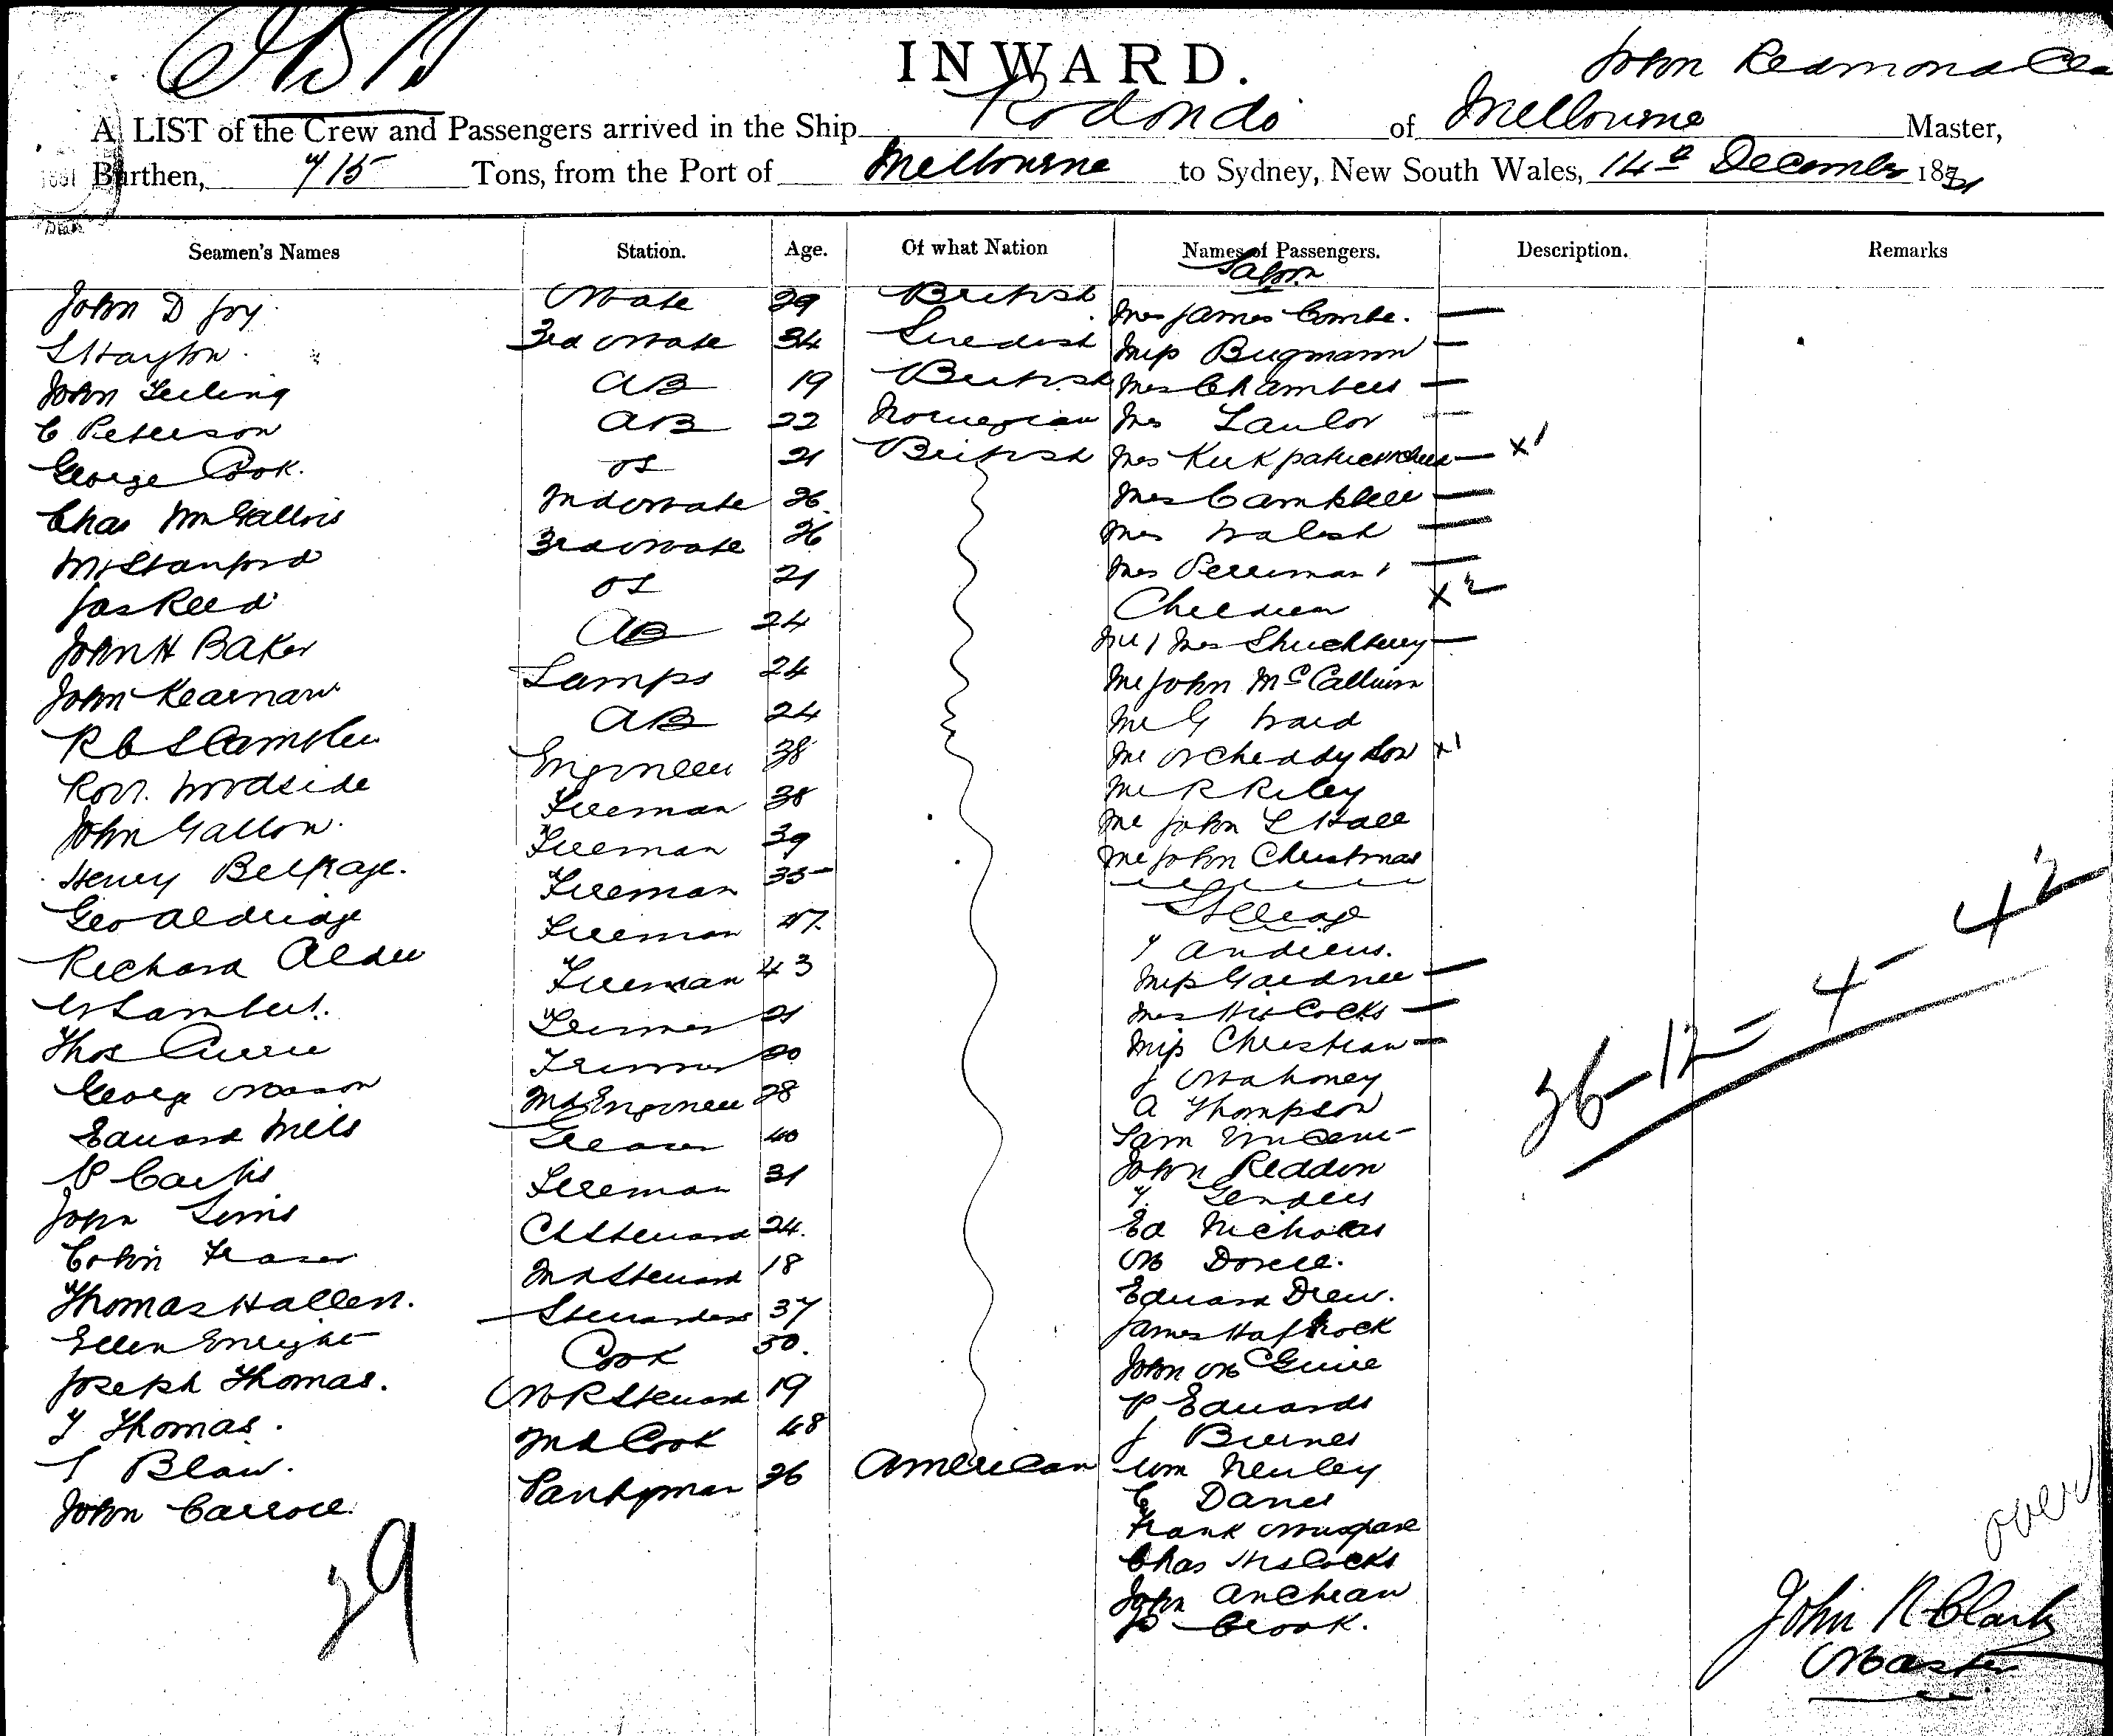 INWARD.
John Redmond
A LIST of the Crew and Passengers arrived in the Ship Rodondo of Melbourne Master,
Burthen, 715 Tons, from the Port of Melbourne to Sydney, New South Wales, 14 December 18
Seamen's Names Station. Age. Of what Nation Names of Passengers. Description. Remarks
Saloon
John D Joy Mate 29 British Mrs James Combe. —
S Hayton 3rd Mate 34 Swedish Miss Bugmann —
John Leiling AB 19 British Mrs Chambers —
C Peterson AB 22 Norwegian Mrs Lawlor —
George Cook. OS 21 British Mrs Kirkpatrick Child — x1
Chas 2nd Mate 26 Mrs Campbell —
Wm Stanford 3rd Mate 26 Mrs Walsh —
Jas Reed OS 21 Mrs Perriman & —
Children x2
John H Baker AB 24 Mr & Mrs Shuckburg —
John Kearnan Lamps 24 Mr John McCallum
R AB 24 Mr G Ward
Robt. Woodside Engineer 38 Mr Son x1
John Gallon. Fireman 38 Mr R Riley
Henry Belfrage. Fireman 39 Mr John L Hall
Geo Aldridge Fireman 35 Mr John Christmas
Steerage
Richard Alder Fireman 47. T Andrews.
W Lambert. Fireman 43 Miss Gardner —
Thos Currie Trimmer 21 Mrs Hiscocks —
George Mason Trimmer 20 Miss Christian —
Edward Mills 2nd Engineer 28 J Mahoney
P Curtis Greaser 40 A Thompson
John Sims Fireman 31 Sam Vincent
Colin Fraser Ch Steward 24. John Reddin
Thomas Hallen. 2nd Steward 18 T. Genders
Ellen Enright Stewardess 37 Ed Nicholas
Joseph Thomas. Cook 30. M
T Thomas. MR Steward 19 Edward Drew.
Blair. 2nd Cook 48 James
John Carroll. Pantryman 26 American John McGuire
P Edwards
J Burnes
Wm Henley
C Davies
Frank Musgrave
Chas Hiscocks
John
P Crook.
29
36 - 12 = 4 - 42
over
John R Clark
Master